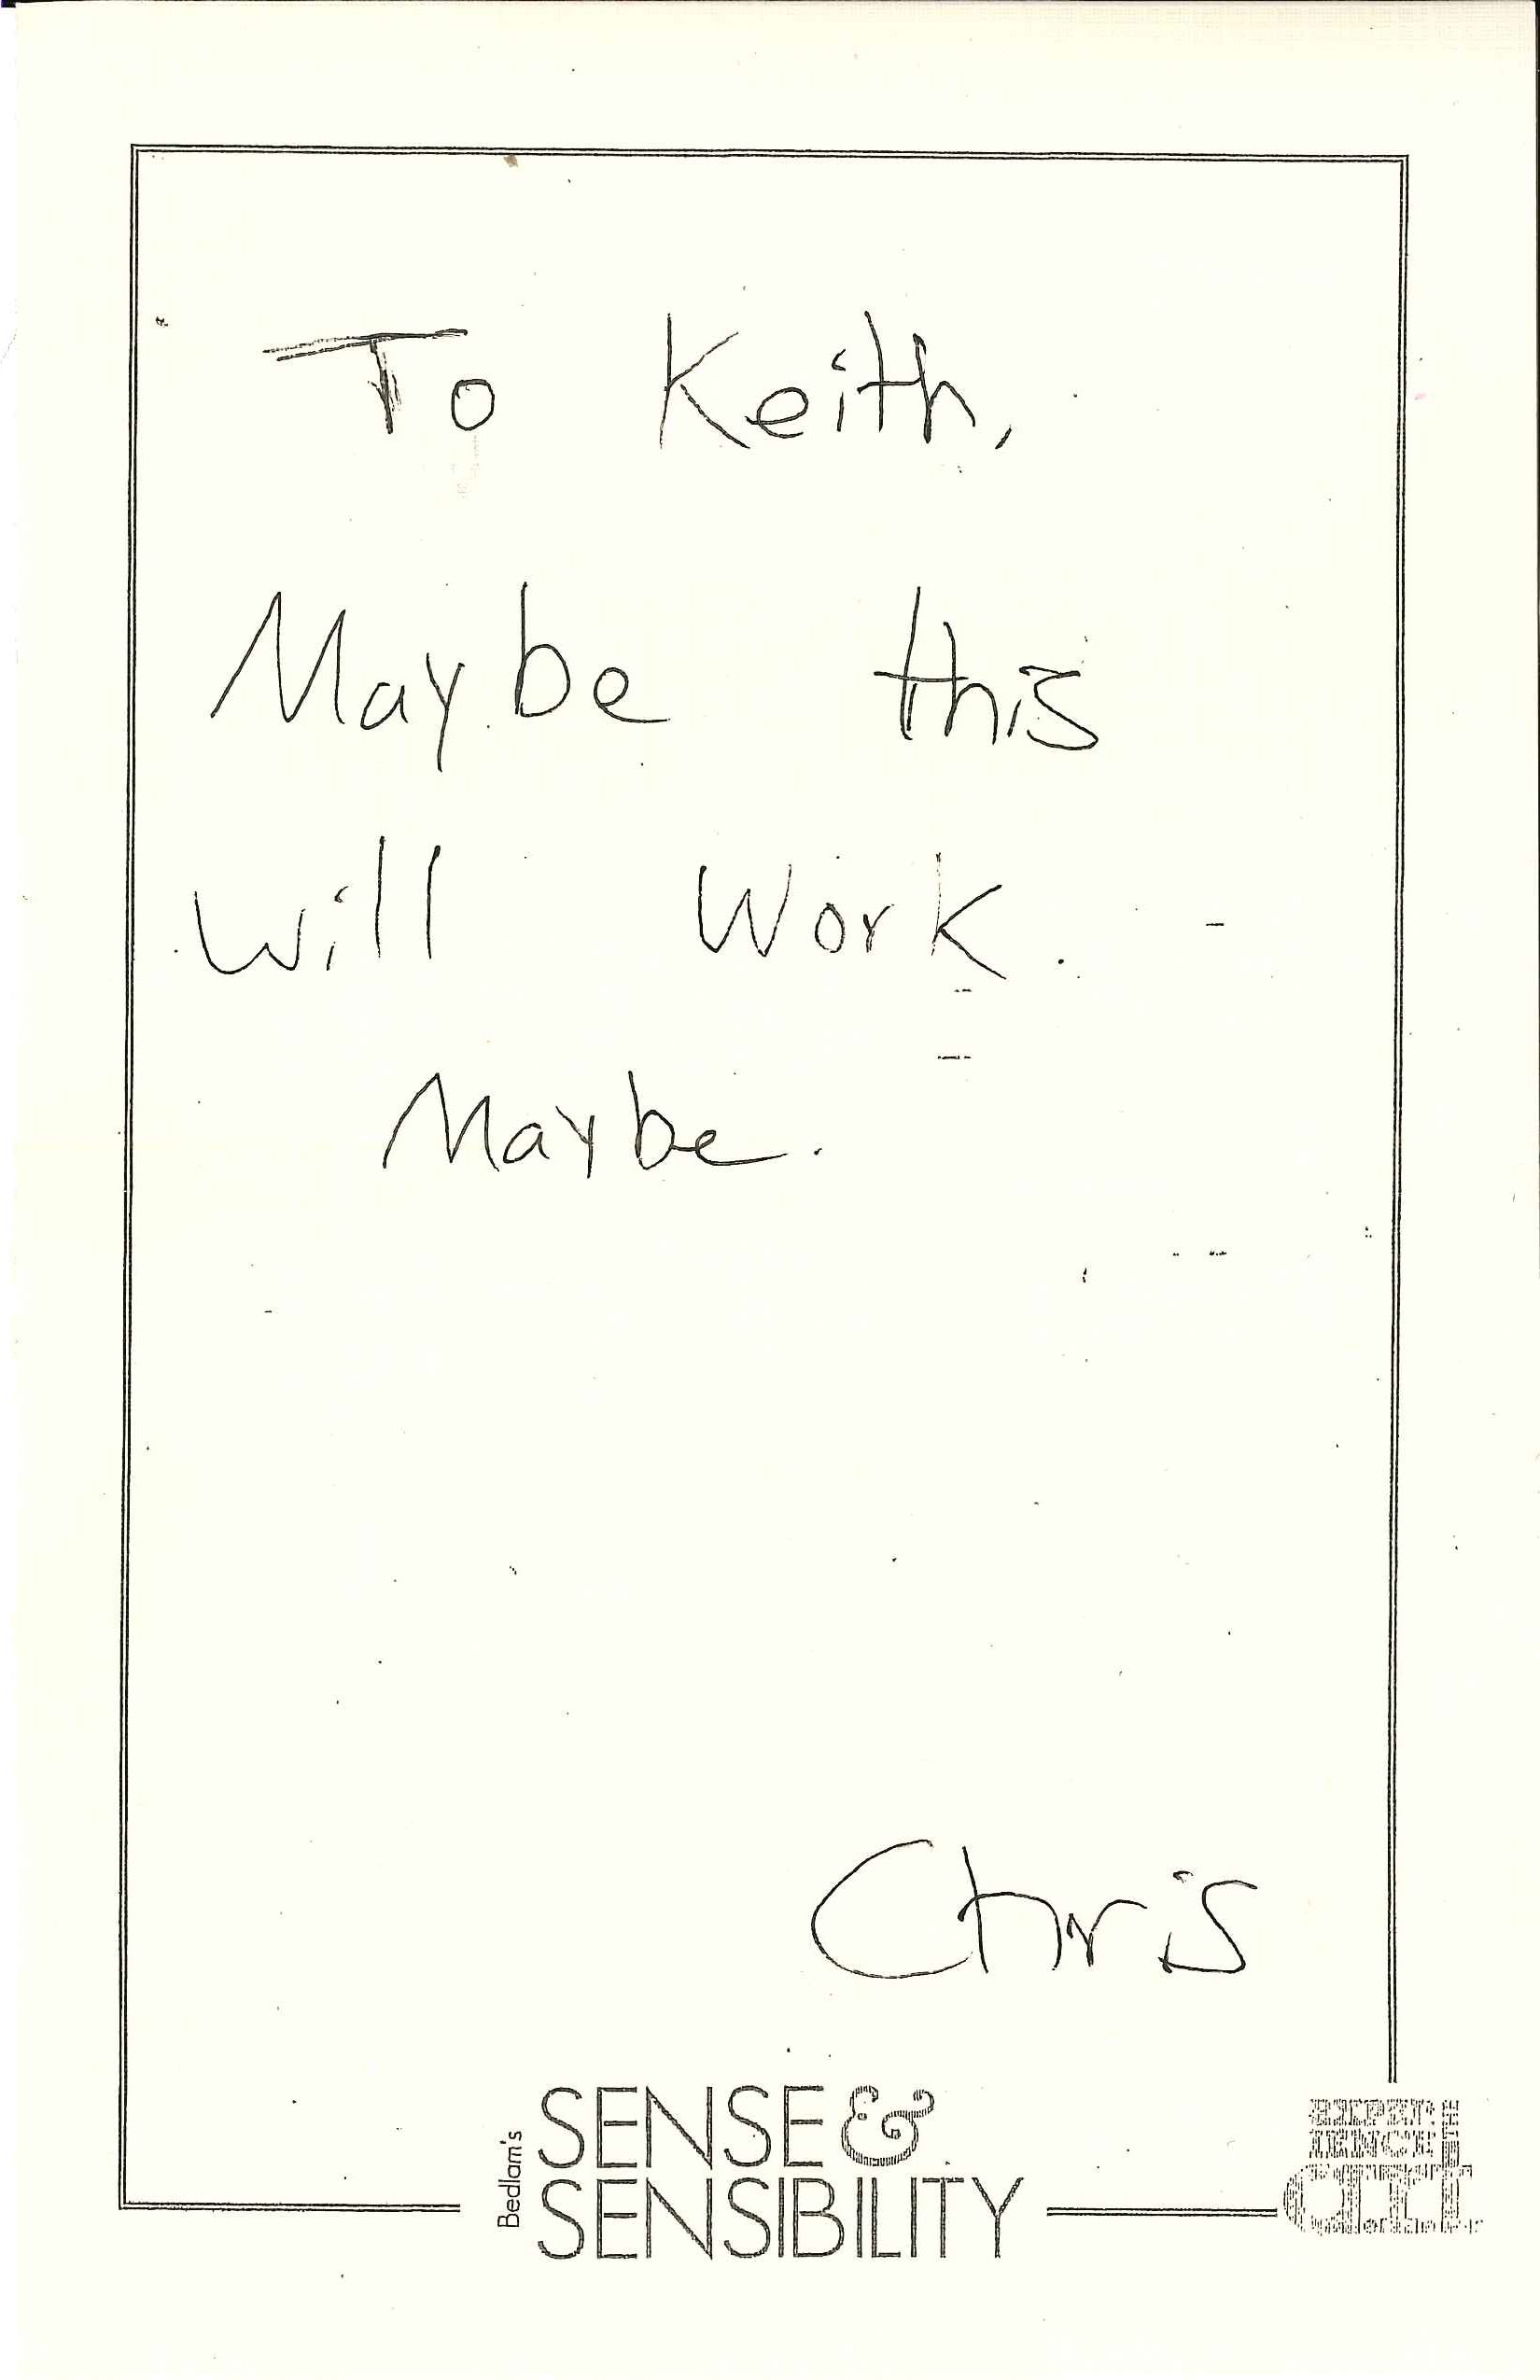 To Keith,
Maybe this
will work.
Maybe.
Chris
Bedlam's
SENSE &
SENSIBILITY
EXPER
IENCE
art